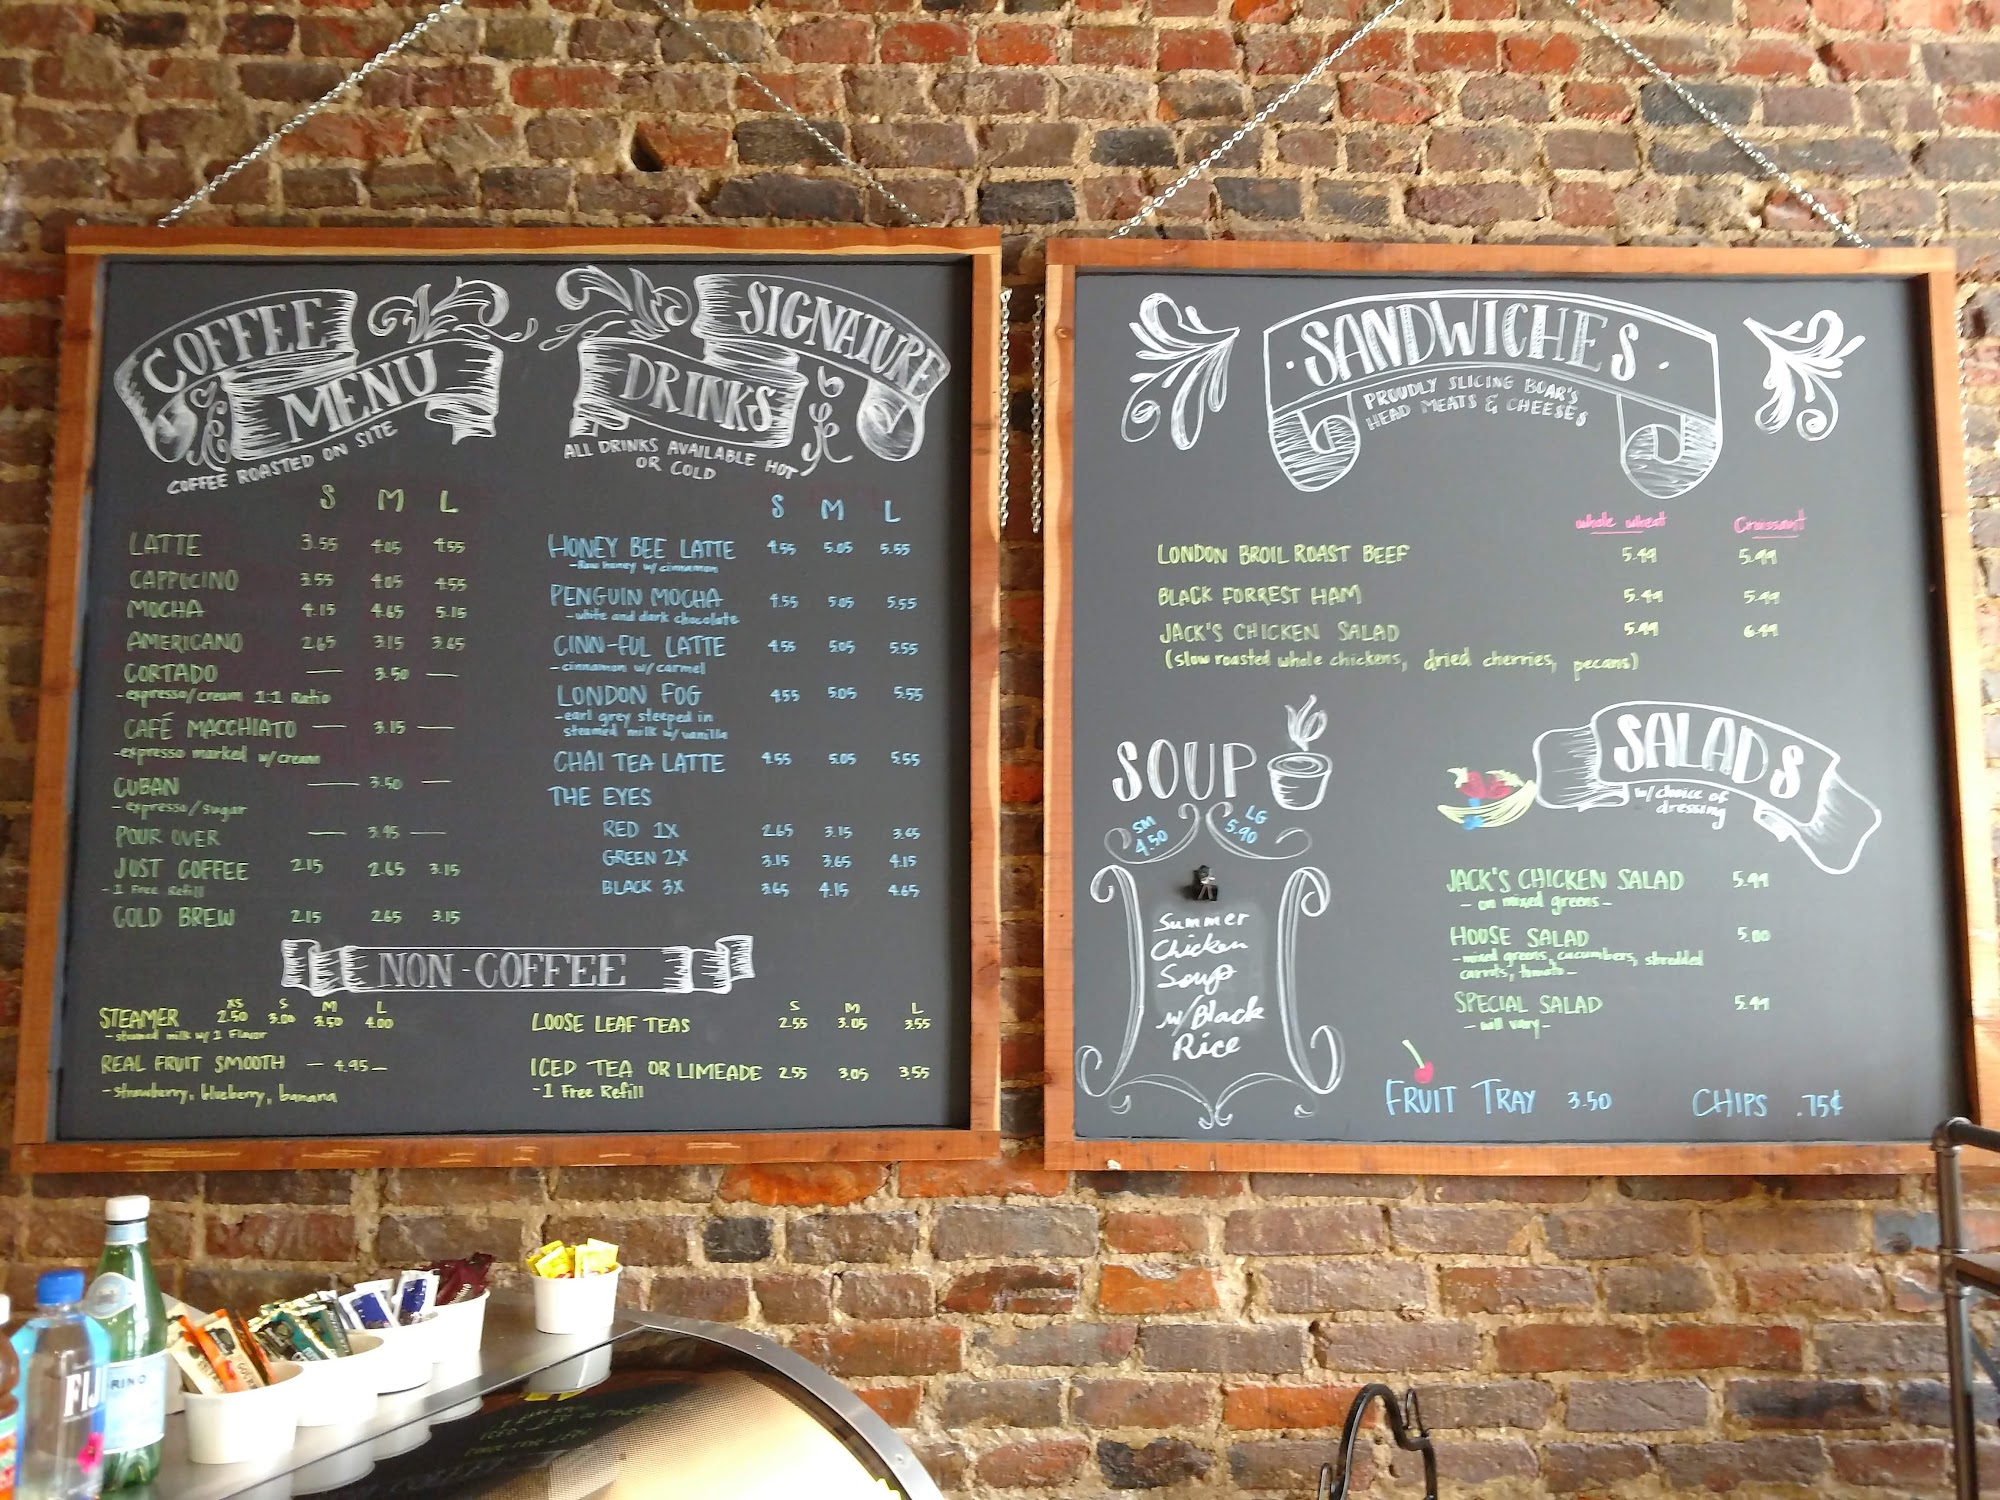 COFFEE
MENU
COFFEE ROASTED ON SITE
S M L
LATTE 3.55 4.05 4.55
CAPPUCINO 3.55 4.05 4.55
MOCHA 4.15 4.65 5.15
AMERICANO 2.65 3.15 3.65
CORTADO — 3.50 —
-espresso/cream 1:1 Ratio
CAFÉ MACCHIATO — 3.15 —
-espresso marked w/cream
CUBAN — 3.50 —
- espresso/sugar
POUR OVER — 3.95 —
JUST COFFEE 2.15 2.65 3.15
- 1 Free Refill
COLD BREW 2.15 2.65 3.15
SIGNATURE
DRINKS
ALL DRINKS AVAILABLE HOT
OR COLD
S M L
HONEY BEE LATTE 4.55 5.05 5.55
-Raw honey w/cinnamon
PENGUIN MOCHA 4.55 5.05 5.55
-white and dark chocolate
CINN-FUL LATTE 4.55 5.05 5.55
-cinnamon w/carmel
LONDON FOG 4.55 5.05 5.55
-earl grey steeped in
steamed milk w/vanilla
CHAI TEA LATTE 4.55 5.05 5.55
THE EYES
RED 1X 2.65 3.15 3.65
GREEN 2X 3.15 3.65 4.15
BLACK 3X 3.65 4.15 4.65
NON-COFFEE
XS S M L
STEAMER 2.50 3.00 3.50 4.00
-steamed milk w/ 1 Flavor
REAL FRUIT SMOOTH — 4.95 —
-strawberry, blueberry, banana
S M L
LOOSE LEAF TEAS 2.55 3.05 3.55
ICED TEA OR LIMEADE 2.55 3.05 3.55
-1 Free Refill
·SANDWICHES·
PROUDLY SLICING BOAR'S
HEAD MEATS & CHEESE'S
whole wheat Croissant
LONDON BROIL ROAST BEEF 5.49 5.99
BLACK FORREST HAM 5.49 5.99
JACK'S CHICKEN SALAD 5.99 6.49
(slow roasted whole chickens, dried cherries, pecans)
SOUP
SM LG
4.50 5.90
Summer
Chicken
Soup
w/Black
Rice
SALADS
w/choice of
dressing
JACK'S CHICKEN SALAD 5.99
- on mixed greens -
HOUSE SALAD 5.00
-mixed greens, cucumbers, shredded
carrots, tomato-
SPECIAL SALAD 5.49
- will vary -
FRUIT TRAY 3.50 CHIPS .75¢
FIJ
RINO